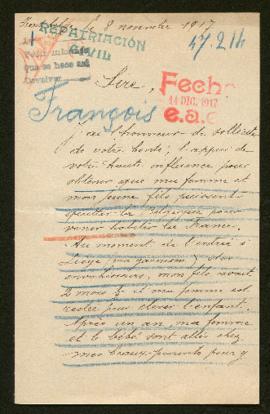 le 8 novembre 1917
REPATRIACIÓN
CIVIL
47.214
que se hace así
Sire,
Fecha
14 DIC. 1917
e.a.
François
j'ai l'honneur de solliciter
de votre bonté, l'appui de
votre haute influence pour
obtenir que ma femme et
mon jeune fils puissent
quitter la Belgique pour
venir habiter la France.
Au moment de l'entrée à
Liège, ma garnison, et des
environs, mon fils avait
2 mois et ma femme est
restée pour élever l'enfant.
Après un an, ma femme
et le bébé sont allés chez
mes beaux-parents pour y